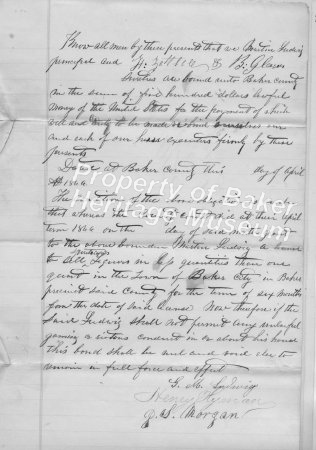 Know all men by these presents that we
principal and
sureties are bound unto Baker County
in the sum of five hundred dollars lawful
money of the United States for the payment of which
well and truly to be made we bind ourselves our
and each of our executors firmly by these
presents
Dated at Baker County this day of April
1866
The condition of the above obligation is such
that whereas the county court did at their April
term 1866 on the day of said month
to the above bounden Ludwig a license
to sell Liquors in less quantities than one
quart in the Town of Baker City in Baker
precinct said County for the term of six months
from the date of said license Now therefore if the
said Ludwig shall not permit any unlawful
gaming or riotous conduct in or about his house
this bond shall be null and void else to
remain in full force and effect
G. M. Ludwig
Henry
J. S. Morgan
Property of Baker
Heritage Museum